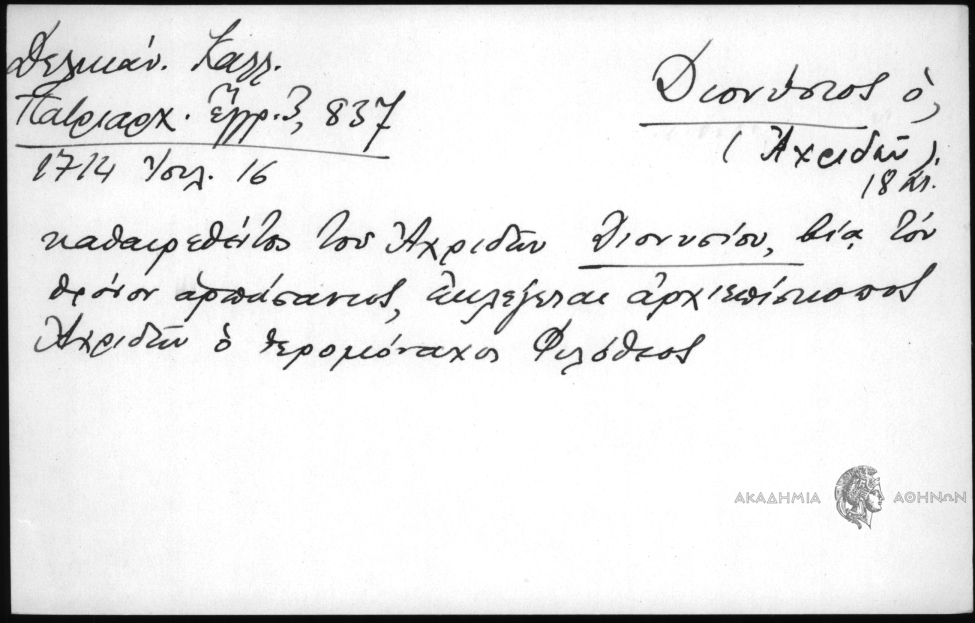 Δελικάν. Καλλ.
Πατριαρχ. ἔγγρ. 3, 837
1714 Ἰουλ. 16
Διονύσιος ὁ,
(Ἀχριδῶν).
18 αἰ.
καθαιρεθέντος τοῦ Ἀχριδῶν Διονυσίου, βίᾳ τὸν
θρόνον ἁρπάσαντος, ἐκλέγεται ἀρχιεπίσκοπος
Ἀχριδῶν ὁ ἱερομόναχος Φιλόθεος
ΑΚΑΔΗΜΙΑ ΑΘΗΝΩΝ